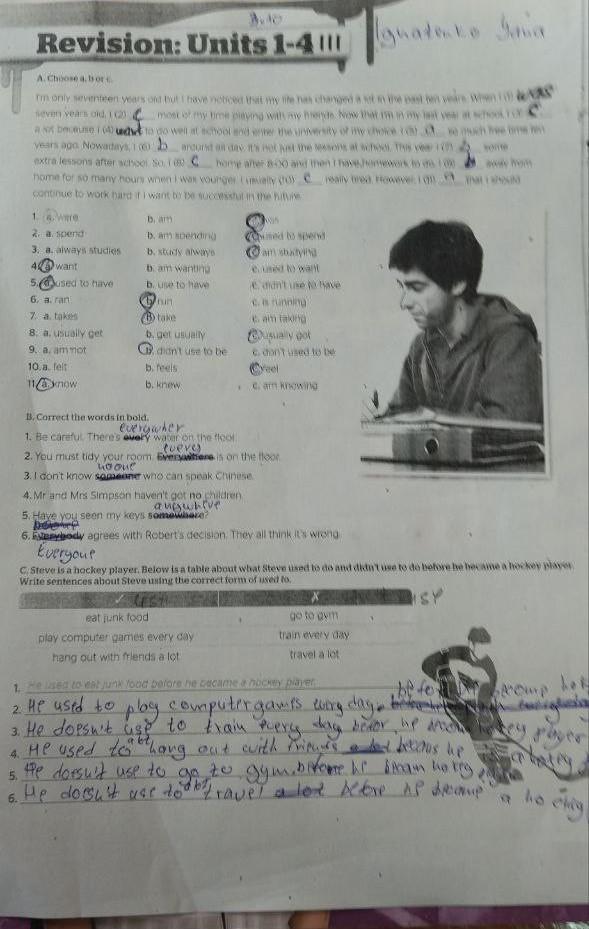 Revision: Units 1-4
Ignatenko
A. Choose a, b or c.
I'm only seventeen years old but I have noticed that my life has changed a lot in the past ten years. When I (1) was
seven years old, I (2) c most of my time playing with my friends. Now that I'm in my last year at school, I (3) c
a lot because I (4) want to do well at school and enter the university of my choice. I (5) a so much free time ten
years ago. Nowadays, I (6) b around all day. It's not just the lessons at school. This year I (7) some
extra lessons after school. So, I (8) c home after 8:00 and then I have homework to do. I (9) b away from
home for so many hours when I was younger. I usually (10) c really tired. However, I (11) a that I should
continue to work hard if I want to be successful in the future.
1. a. were b. am c. was
2. a. spend b. am spending c. used to spend
3. a. always studies b. study always c. am studying
4. a. want b. am wanting c. used to want
5. a. used to have b. use to have c. didn't use to have
6. a. ran b. run c. is running
7. a. takes b. take c. am taking
8. a. usually get b. get usually c. usually got
9. a. am not b. didn't use to be c. don't used to be
10. a. felt b. feels c. feel
11. a. know b. knew c. am knowing
B. Correct the words in bold.
everywher
1. Be careful. There's every water on the floor.
every
2. You must tidy your room. Everywhere is on the floor.
noone
3. I don't know someone who can speak Chinese.
4. Mr and Mrs Simpson haven't got no children.
anywhere
5. Have you seen my keys somewhere?
6. Everybody agrees with Robert's decision. They all think it's wrong.
Everyone
C. Steve is a hockey player. Below is a table about what Steve used to do and didn't use to do before he became a hockey player.
Write sentences about Steve using the correct form of used to.
✓ ✗
eat junk food go to gym
play computer games every day train every day
hang out with friends a lot travel a lot
1. He used to eat junk food before he became a hockey player.
2. He used to play computer games every day
3. He doesn't use to train every day befor he
4. He used to hang out with friends
5. He doesn't use to go to gym before he
6. He doesn't use to travel before he became a